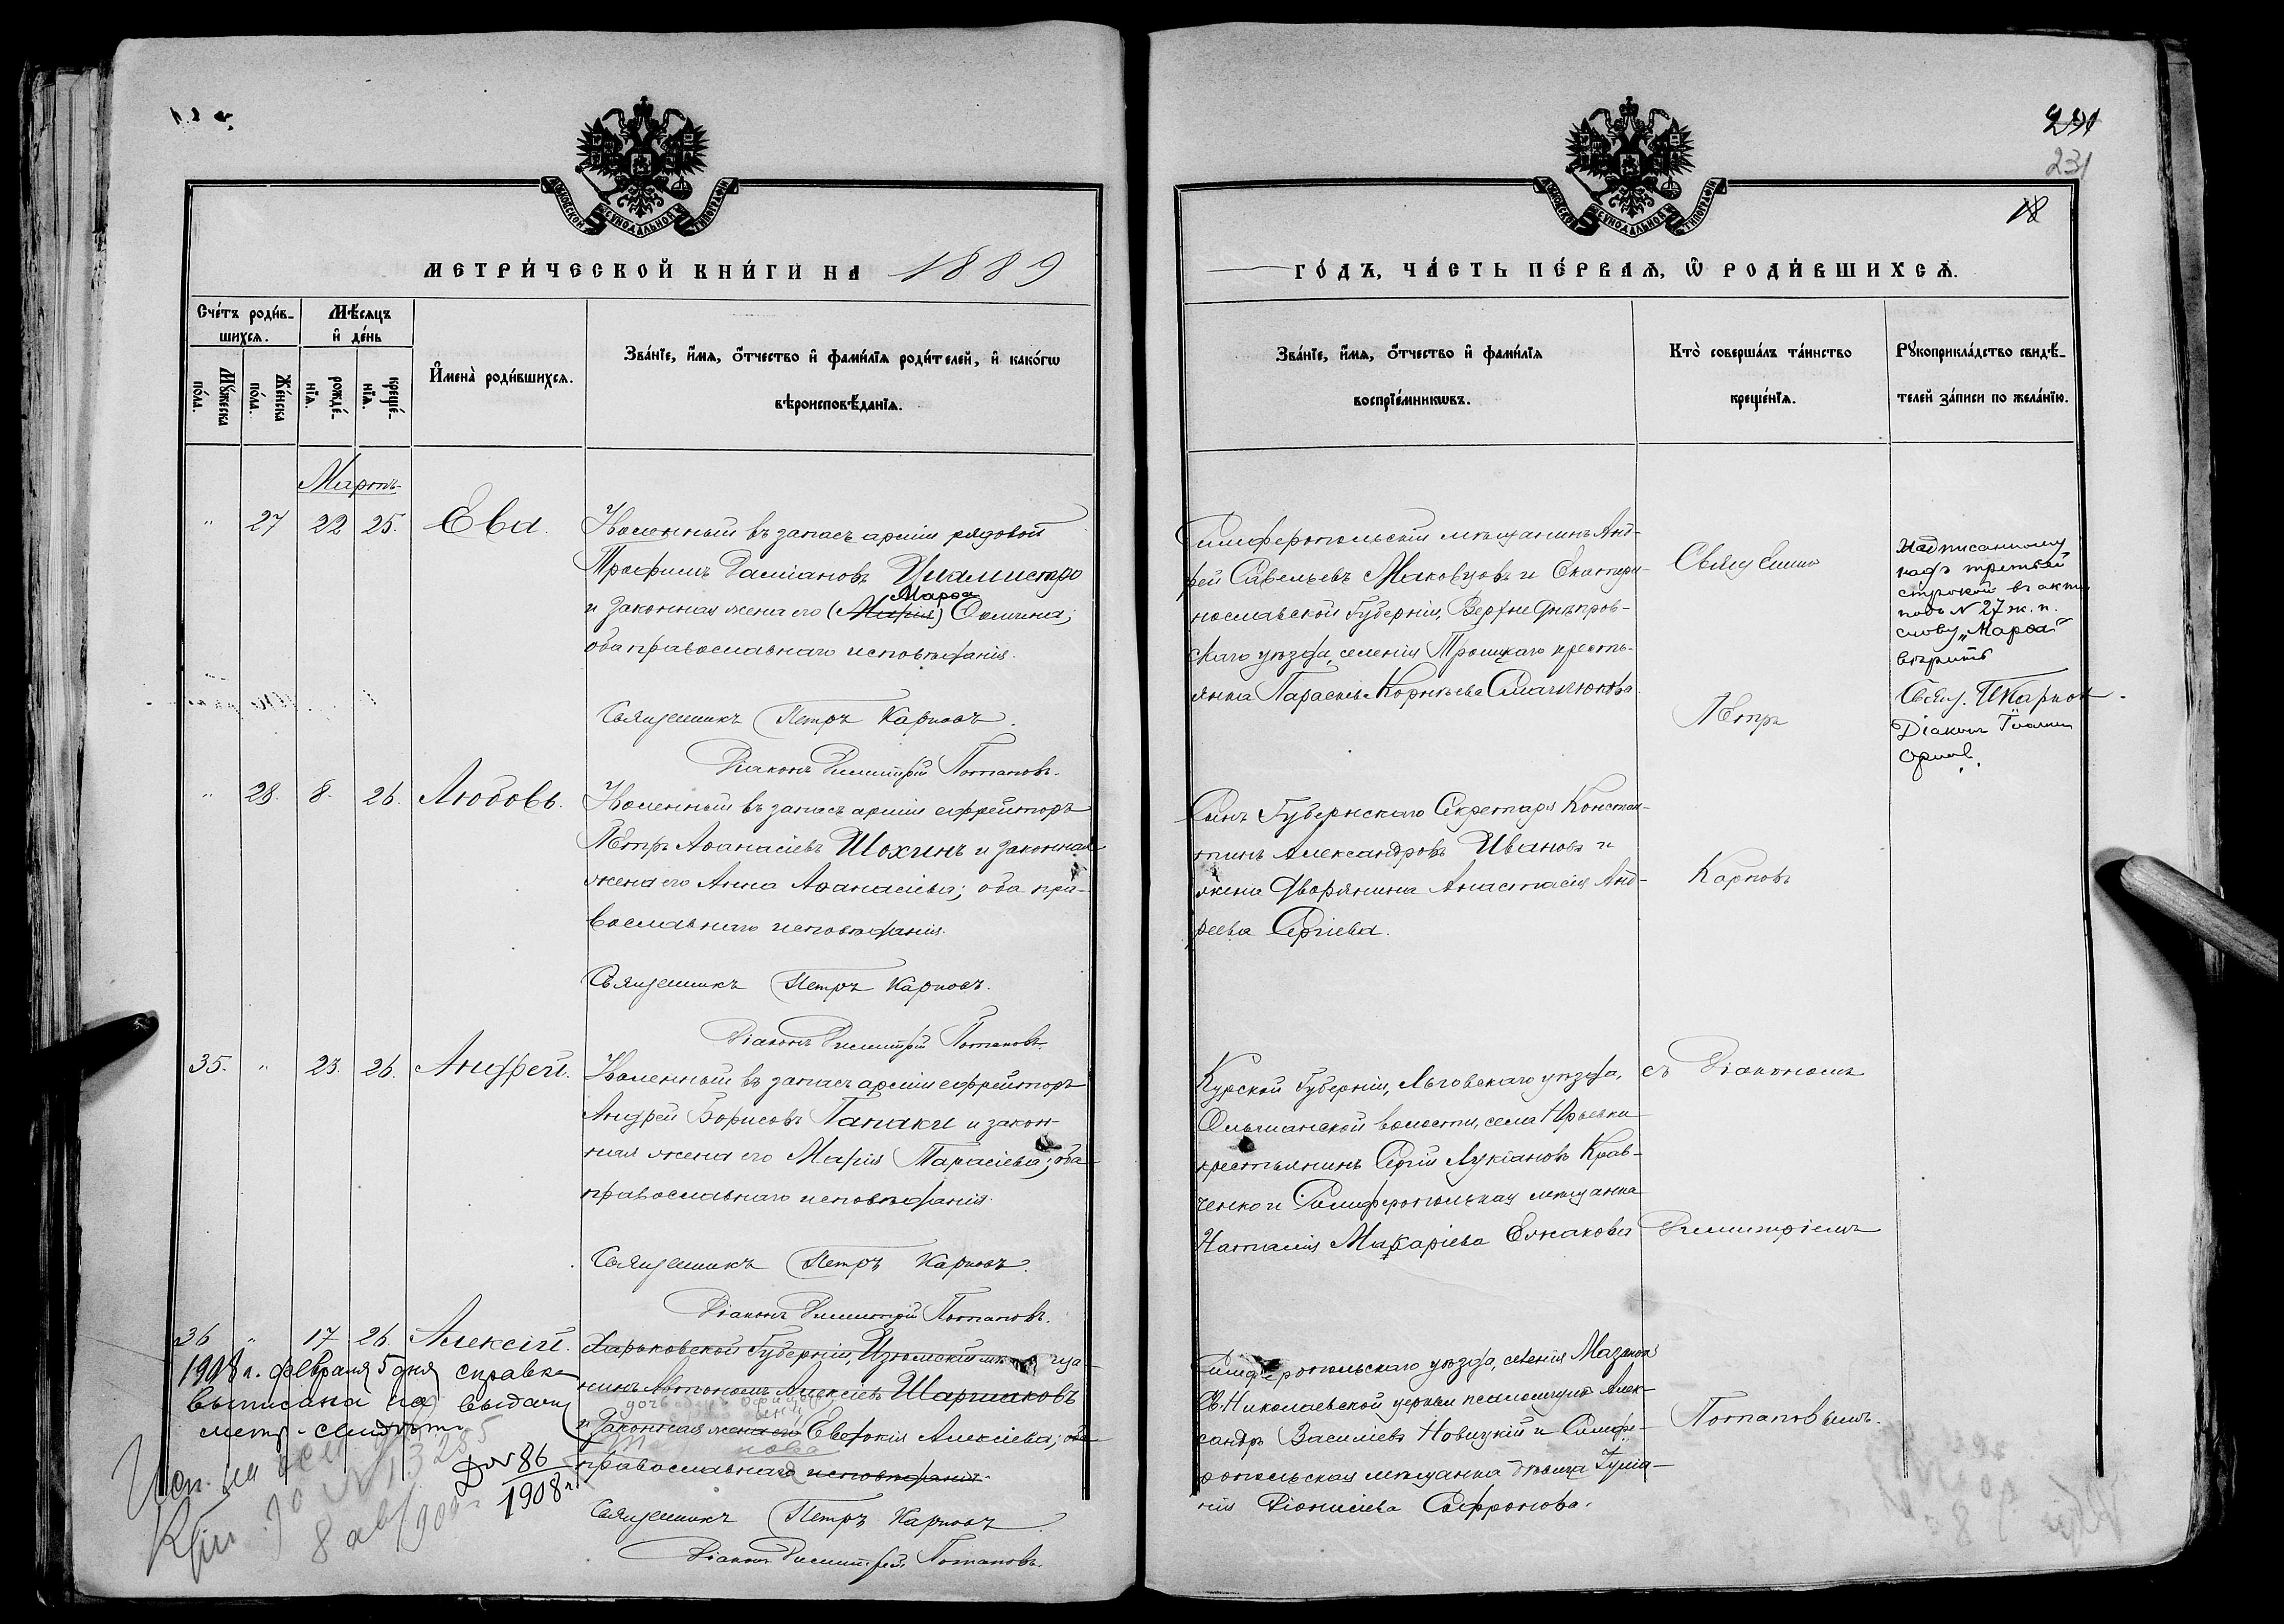 231
18
МОСКОВСКОЙ СѴНОДАЛЬНОЙ ТИПОГРАФІИ
МОСКОВСКОЙ СѴНОДАЛЬНОЙ ТИПОГРАФІИ
МЕТРИ́ЧЕСКОЙ КНИ́ГИ НА 1889
ГО́ДЪ, ЧА́СТЬ ПЕ́РВАѦ, Ѽ РОДИ́ВШИХСѦ.
Сче́тъ роди́в-
шихсѧ.
Мꙋ́жеска по́ла.
Же́нска по́ла.
Мѣ́сѧцъ
и҆ де́нь
рожде́-нїѧ.
креще́-нїѧ.
И҆мена̀ роди́вшихсѧ.
Зва́нїе, и҆́мѧ, ѻ҆́тчество и҆ фами́лїѧ роди́телей, и҆ како́гѡ
вѣроисповѣ́данїѧ.
Зва́нїе, и҆́мѧ, ѻ҆́тчество и҆ фами́лїѧ
воспрїе́мникѡвъ.
Кто̀ соверша́лъ та́инство
креще́нїѧ.
Рꙋкоприкла́дство свидѣ́-
телей за́писи по жела́нїю.
Мартъ
" 27 22 25. Ева.
Уволенный въ запасъ арміи рядовой
Трофимъ Даміановъ
Марѳа
и законная жена его (Марія) Ѳомина;
оба православнаго исповѣданія.
Священникъ Петръ Карповъ.
Діаконъ Димитрій Потаповъ.
Симферопольскій мѣщанинъ Анд-
рей Савельевъ Маковцовъ и Екатери-
нославской Губерніи, Верхнеднѣпров-
скаго уѣзда, селенія Троицкаго кресть-
янка Параскева Корнѣева
Священно
Петръ
Надписанному
надъ третьей
строкой въ актѣ
подъ N 27 ж. п.
слову "Марѳа"
вѣрить
Свящ. П Карпов
Діаконъ Іоаннъ
" 28. 8. 26. Любовь.
Уволенный въ запасъ арміи ефрейторъ
Петръ Аѳанасіевъ Шохинъ и законная
жена его Анна Аѳанасіева; оба пра-
вославнаго исповѣданія.
Священникъ Петръ Карповъ.
Діаконъ Димитрій Потаповъ.
Сынъ Губернскаго Секретаря Констан-
тинъ Александровъ Ивановъ и
жена дворянина Анастасія Анд-
реева Сергіева.
Карповъ
35. " 23. 26. Андрей.
Уволенный въ запасъ арміи ефрейторъ
Андрей Борисовъ Папаки и закон-
ная жена его Марія Тарасіева; оба
православнаго исповѣданія.
Священникъ Петръ Карповъ.
Діаконъ Димитрій Потаповъ.
Курской Губерніи, Льговскаго уѣзда,
Ольшанской волости, села Юрьевки
крестьянинъ Сергій Лукіановъ Крав-
ченко и Симферопольская мѣщанка
Наталія Макаріева Ежакова
съ Діакономъ
Димитріемъ
36 " 17 26. Алексій.
Харьковской Губерніи, Изюмскій мѣща-
нинъ Автономъ Алексіевъ Шаршаковъ
и законная жена его Евдокія Алексіева; оба
православнаго исповѣданія.
Священникъ Петръ Карповъ
Діаконъ Димитрій Потаповъ.
Симферопольскаго уѣзда, селенія Мазанка
Св. Николаевской церкви псаломщикъ Алек-
сандръ Василіевъ Новицкій и Симфе-
ропольская мѣщанка дѣвица
Діонисіева Сафронова.
Потаповымъ.
1908 г. февраля 5 дня справка
выписана на выдачу
метр.
N 86
1908 г.
N 13285
8 авг 1900 г